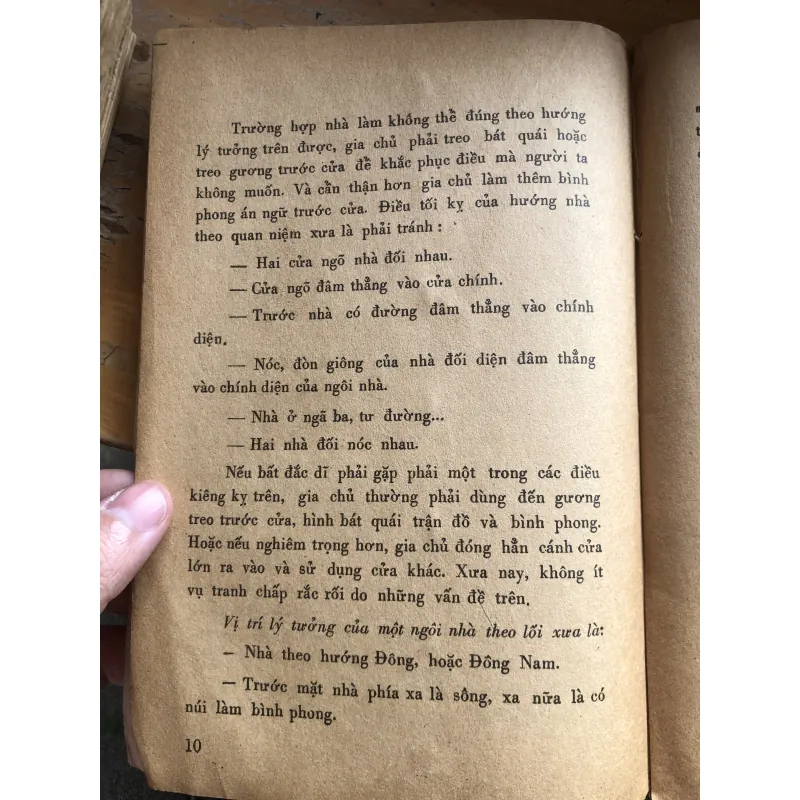 Trường hợp nhà làm không thể đúng theo hướng
lý tưởng trên được, gia chủ phải treo bát quái hoặc
treo gương trước cửa để khắc phục điều mà người ta
không muốn. Và cẩn thận hơn gia chủ làm thêm bình
phong án ngữ trước cửa. Điều tối kỵ của hướng nhà
theo quan niệm xưa là phải tránh :
— Hai cửa ngõ nhà đối nhau.
— Cửa ngõ đâm thẳng vào cửa chính.
— Trước nhà có đường đâm thẳng vào chính
diện.
— Nóc, đòn giông của nhà đối diện đâm thẳng
vào chính diện của ngôi nhà.
— Nhà ở ngã ba, tư đường...
— Hai nhà đối nóc nhau.
Nếu bất đắc dĩ phải gặp phải một trong các điều
kiêng kỵ trên, gia chủ thường phải dùng đến gương
treo trước cửa, hình bát quái trận đồ và bình phong.
Hoặc nếu nghiêm trọng hơn, gia chủ đóng hẳn cánh cửa
lớn ra vào và sử dụng cửa khác. Xưa nay, không ít
vụ tranh chấp rắc rối do những vấn đề trên.
Vị trí lý tưởng của một ngôi nhà theo lối xưa là:
— Nhà theo hướng Đông, hoặc Đông Nam.
— Trước mặt nhà phía xa là sông, xa nữa là có
núi làm bình phong.
10